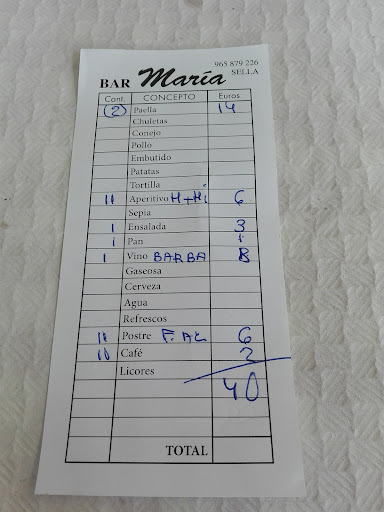 965 879 226
BAR María SELLA
Cant. CONCEPTO Euros
(2) Paella 14
Chuletas
Conejo
Pollo
Embutido
Patatas
Tortilla
11 Aperitivo H+Hi 6
Sepia
1 Ensalada 3
1 Pan 1
1 Vino BARBA 8
Gaseosa
Cerveza
Agua
Refrescos
11 Postre 6
10 Café 2
Licores
40
TOTAL